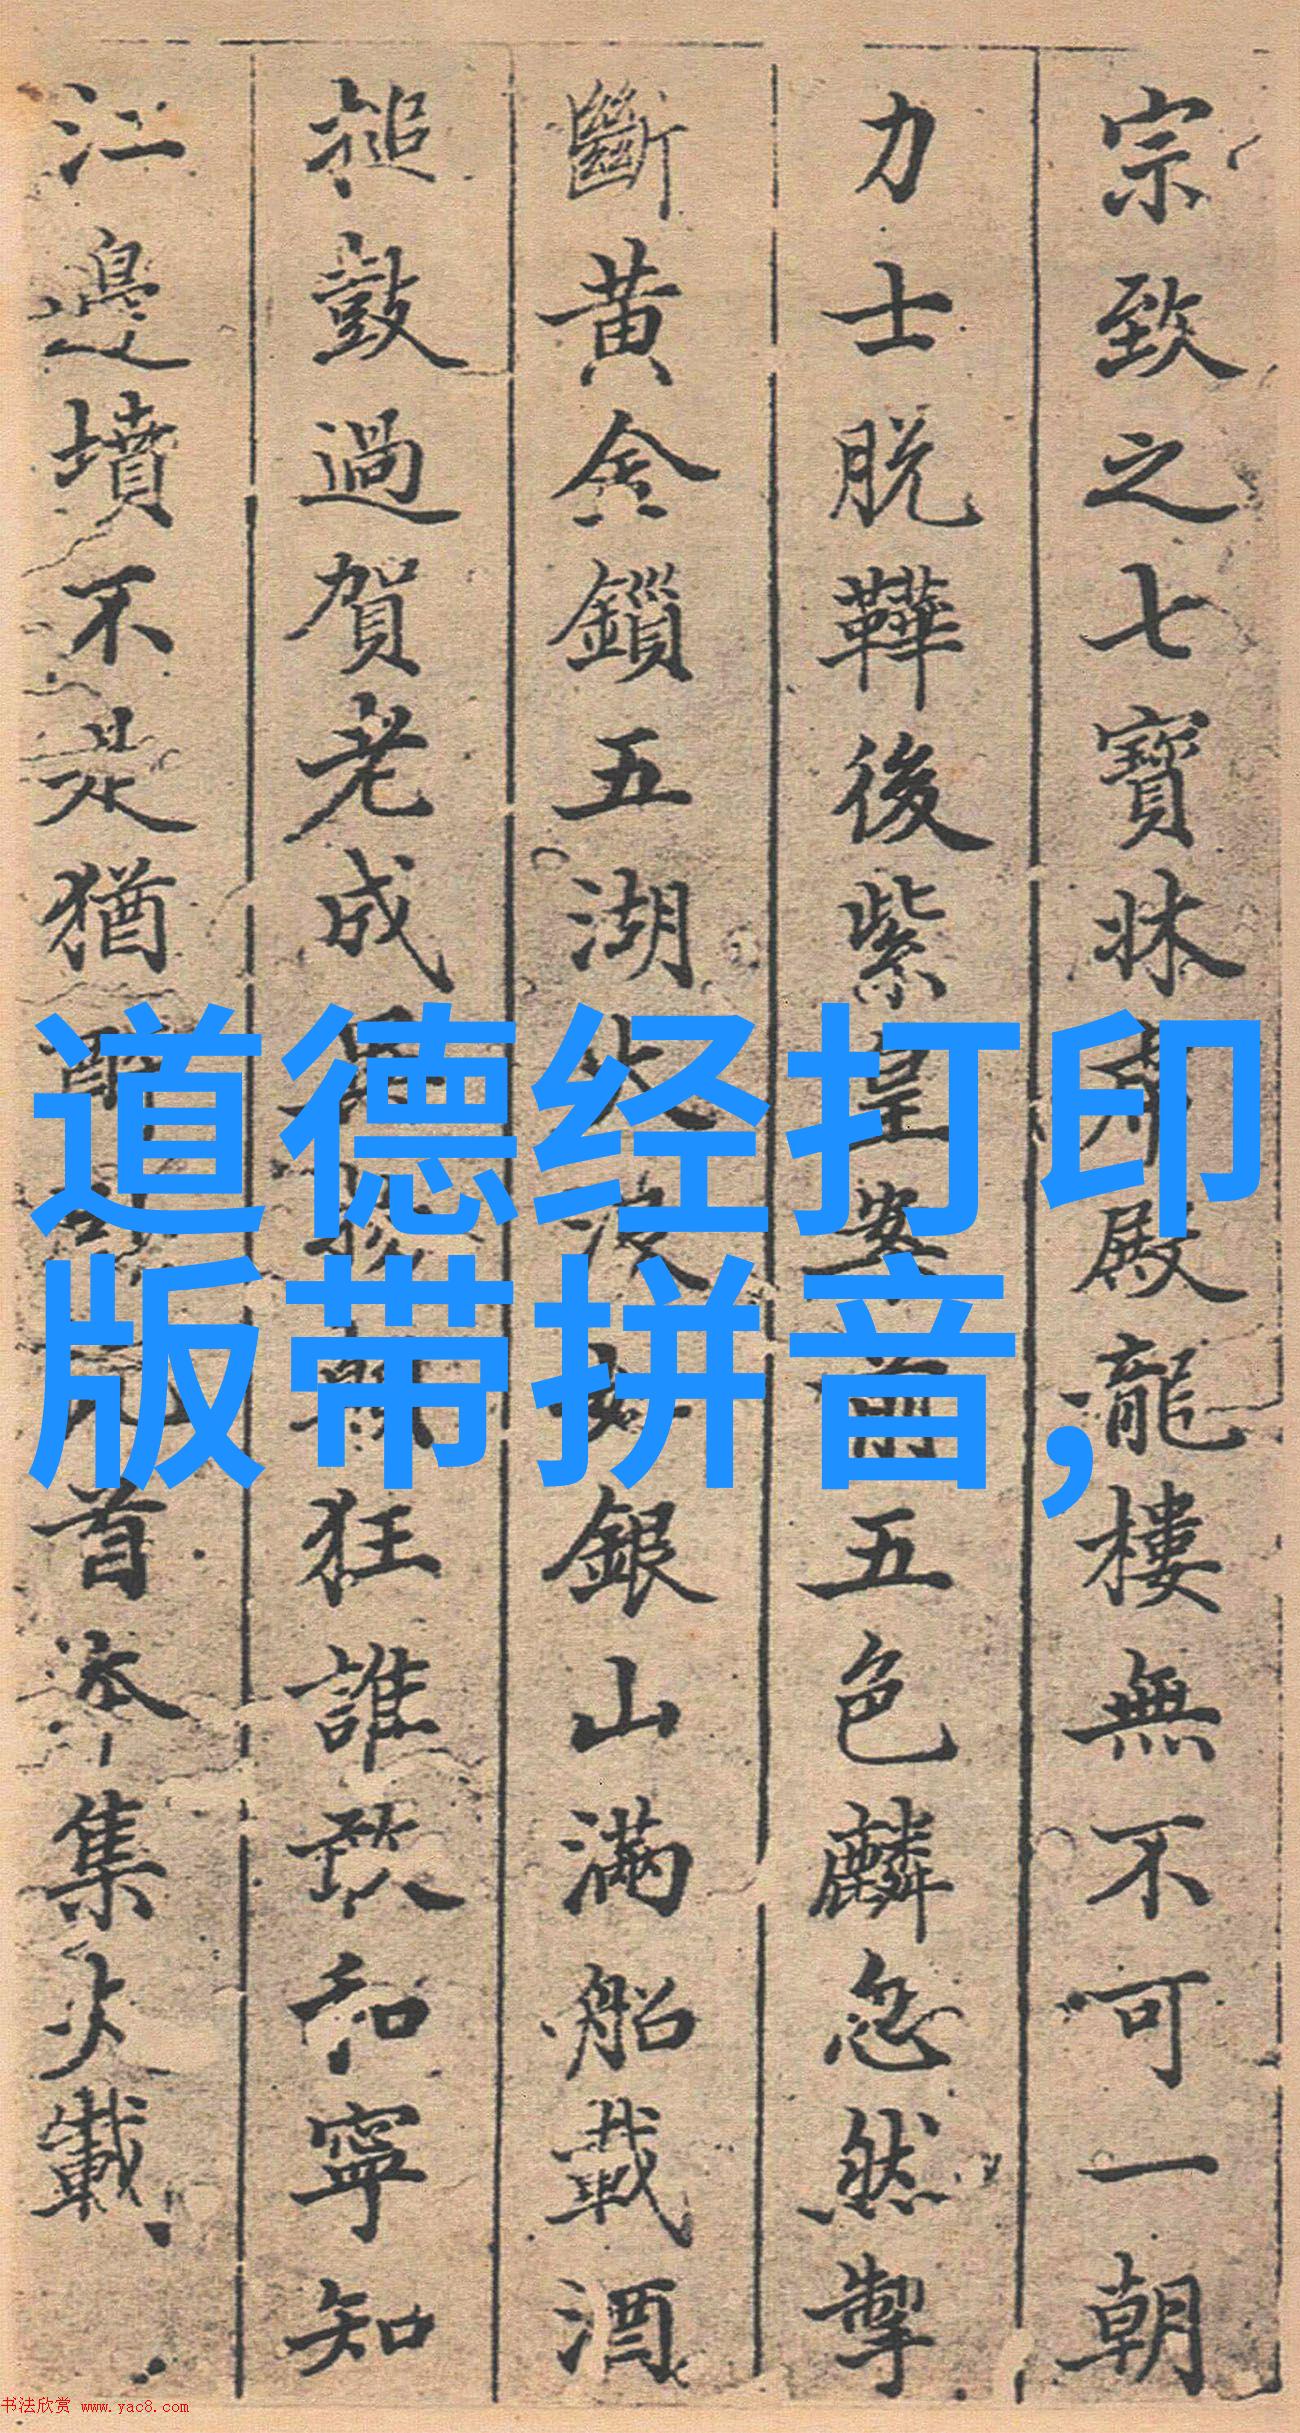 宗致之七寶牀 殿龍樓無不可一朝
力士脫鞾後紫皇 前五色麟忽然掣
斷黃金鎖五湖大 銀山滿船載酒
搥鼓過賀老成 狂誰敢和寧知
江邊墳不是猶 首本集大載
道德经打印
版带拼音,
书法欣赏 www.yac8.com